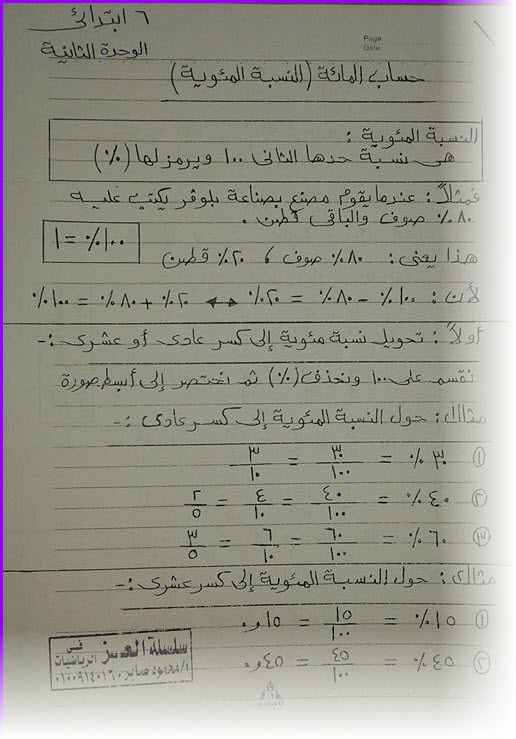 ٦ ابتدائى
الوحدة الثانية
١
Page
Date
حساب المائة (النسبة المئوية)
النسبة المئوية :
هى نسبة حدها الثانى ١٠٠ ويرمز لها (٪)
فمثلاً : عندما يقوم مصنع بصناعة بلوفر يكتب عليه
٨٠٪ صوف والباقى قطن .
١٠٠٪ = ١
هذا يعنى : ٨٠٪ صوف ، ٢٠٪ قطن
لأن : ١٠٠٪ - ٨٠٪ = ٢٠٪ ↔ ٢٠٪ + ٨٠٪ = ١٠٠٪
أولاً : تحويل نسبة مئوية إلى كسر عادى أو عشرى :-
نقسم على ١٠٠ ونحذف (٪) ثم نختصر إلى أبسط صورة
مثال : حول النسبة المئوية إلى كسر عادى :-
① ٣٠٪ = ٣٠/١٠٠ = ٣/١٠
② ٤٠٪ = ٤٠/١٠٠ = ٤/١٠ = ٢/٥
③ ٦٠٪ = ٦٠/١٠٠ = ٦/١٠ = ٣/٥
مثال : حول النسبة المئوية إلى كسر عشرى :-
① ١٥٪ = ١٥/١٠٠ = ١٥و٠
② ٤٥٪ = ٤٥/١٠٠ = ٤٥و٠
سلسلة العز فى الرياضيات
أ/محمود صابر ٠١٠٠٩١٤٠١٦٠